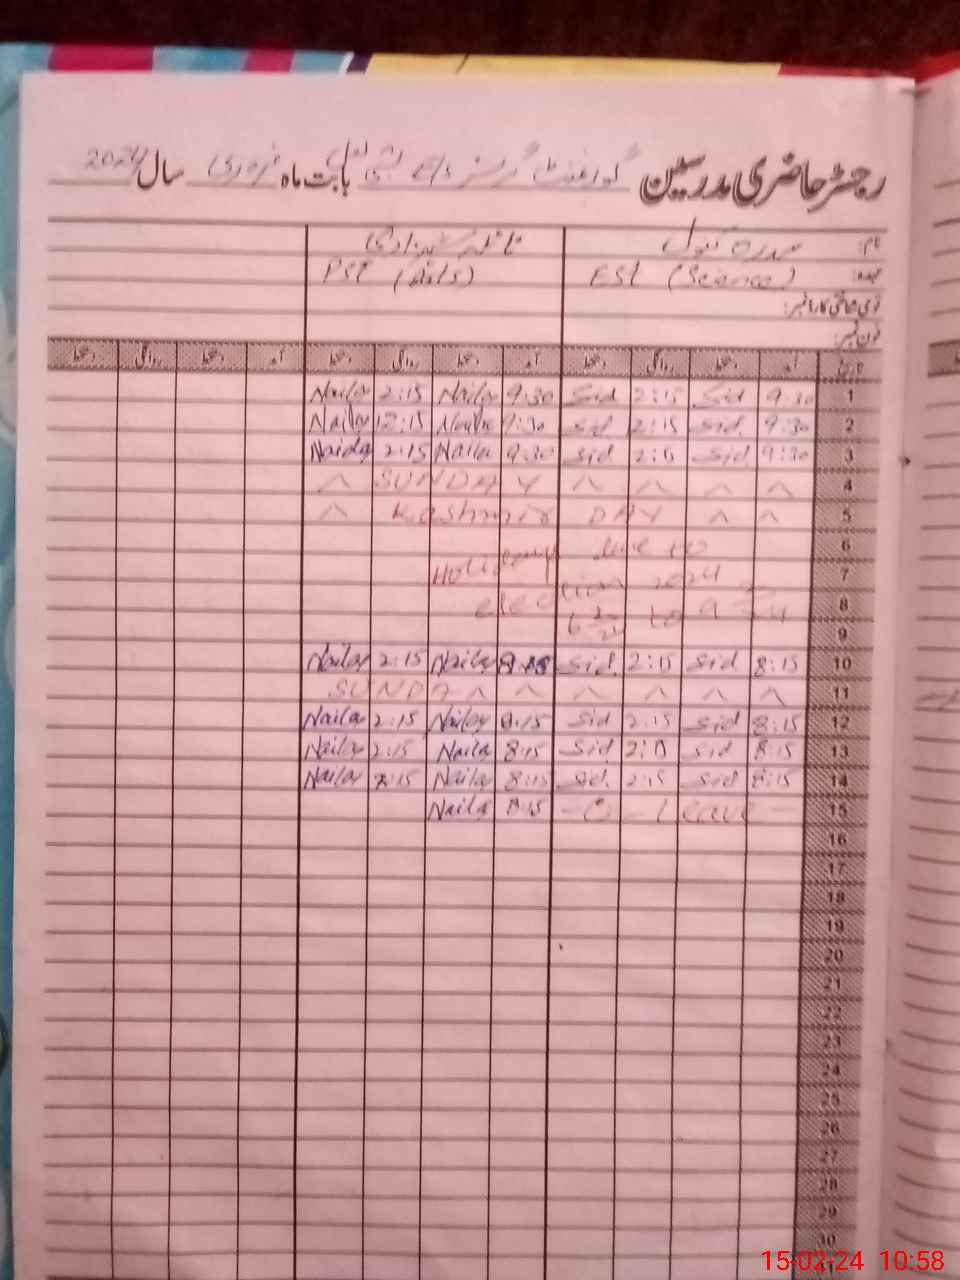 رجسٹر حاضری مدرسین گورنمنٹ گرلز بابت ماہ فروری سال 2024
نام: سدرہ کنول نائلہ شہزادی
عہدہ: ESE (Science) PST (Arts)
قومی شناختی کارڈ نمبر:
فون نمبر:
تاریخ آمد دستخط روانگی دستخط آمد دستخط روانگی دستخط آمد دستخط روانگی دستخط
Naila 2:15 Naila 9:30 Sid 2:15 Sid 9:30 1
Naila 12:15 Naila 9:30 Sid 2:15 Sid. 9:30 2
Naila 2:15 Naila 9:30 Sid. 2:15 Sid. 9:30 3
^ SUNDAY ^ ^ ^ ^ 4
^ Kashmir DAY ^ ^ 5
Holiday due to 6
election 2024 7
8
9
Naila 2:15 Naila Sid 2:15 Sid 8:15 10
SUNDA ^ ^ ^ ^ ^ ^ 11
Naila 2:15 Naila 8:15 Sid 2:15 Sid 8:15 12
Naila 2:15 Naila 8:15 Sid 2:15 Sid 8:15 13
Naila 2:15 Naila 8:15 Sid. 2:15 Sid 8:15 14
Naila 8:15 – C – Leave – 15
16
17
18
19
20
21
22
23
24
25
26
27
28
29
30
15-02-24 10:58